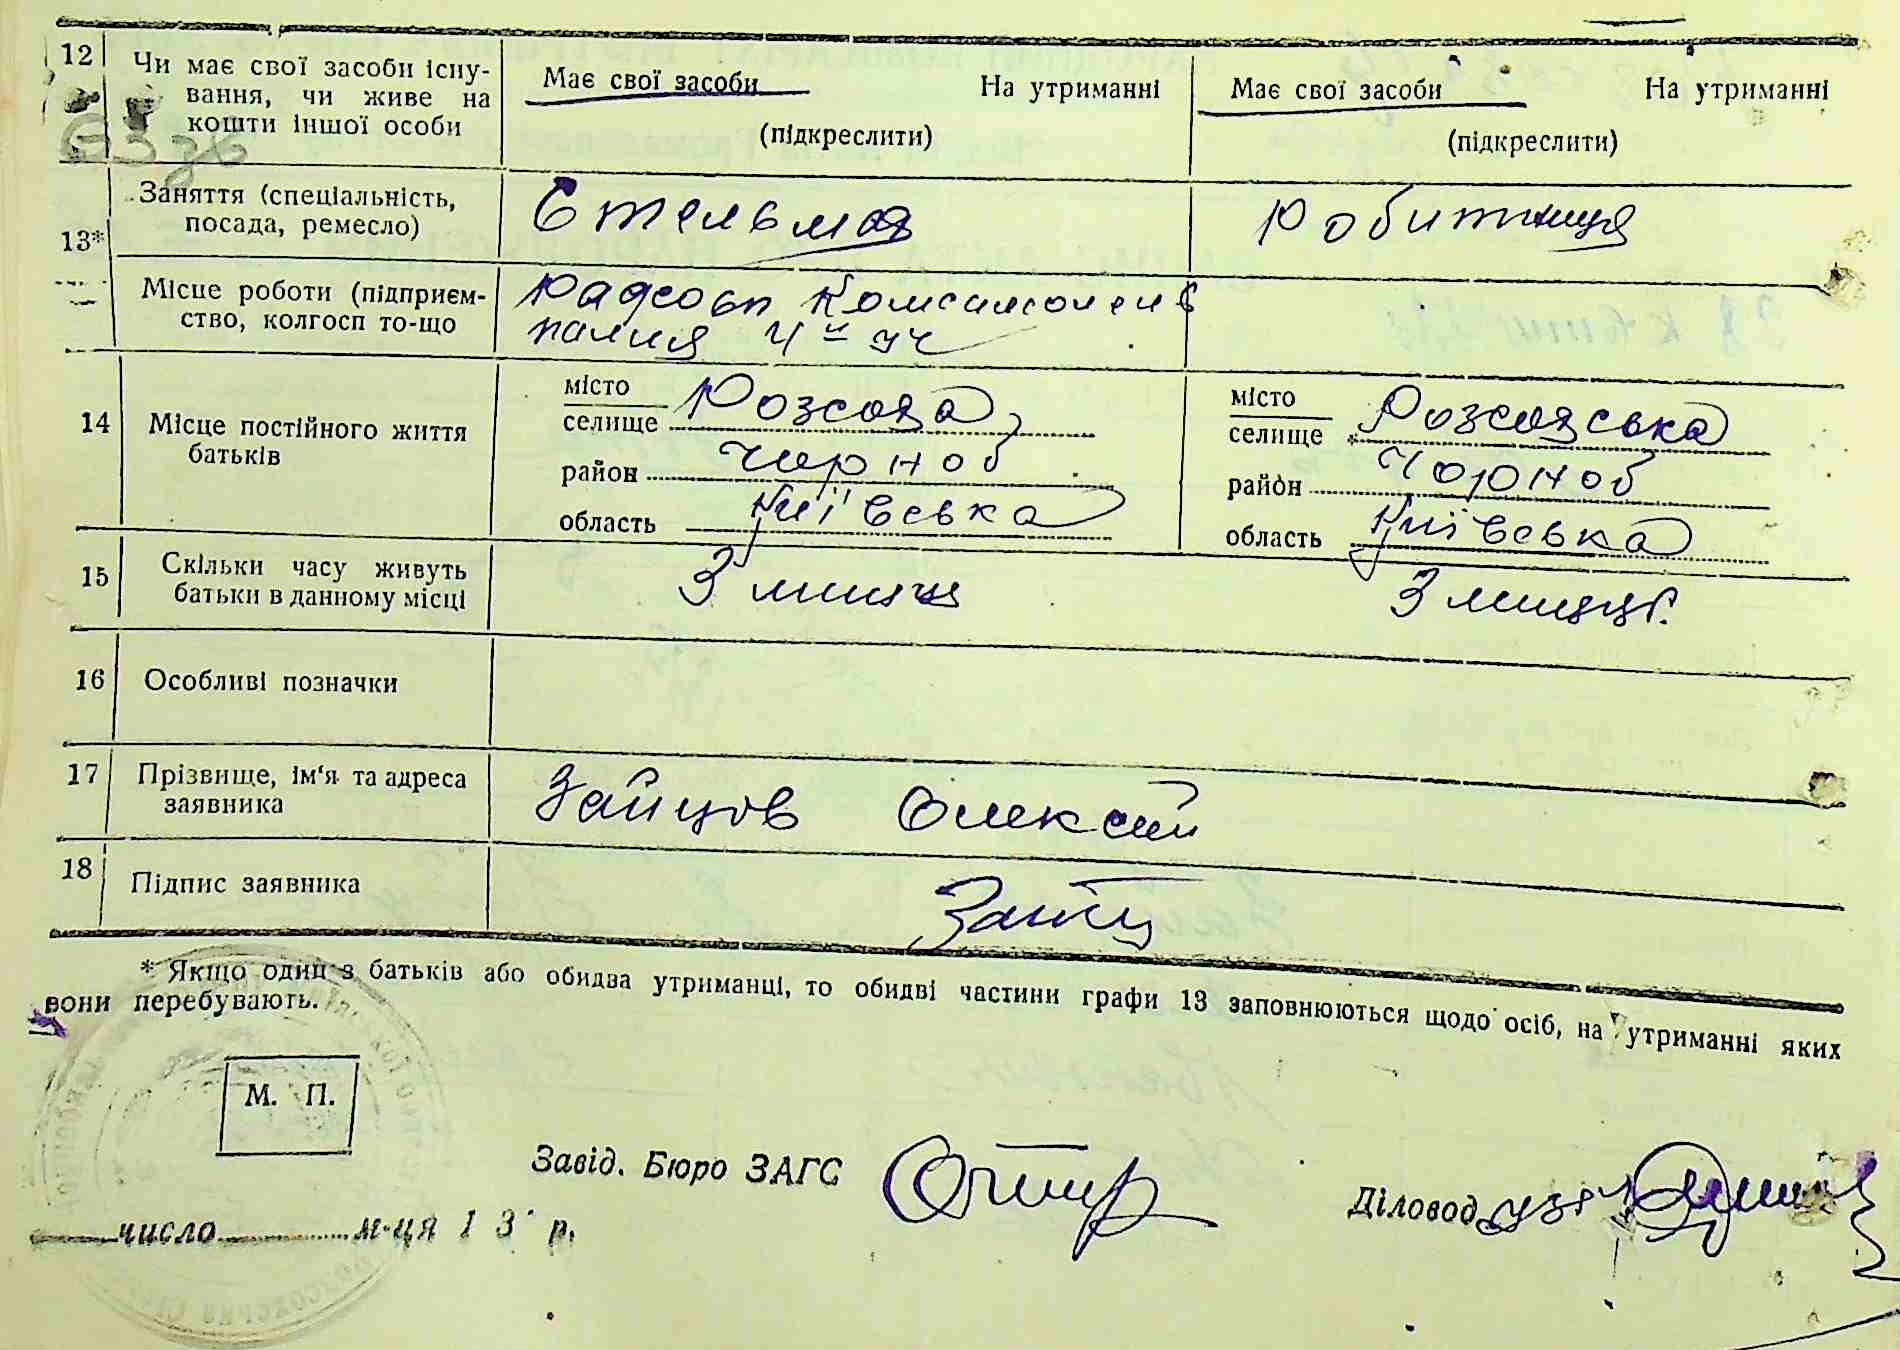 12 Чи має свої засоби існу-
вання, чи живе на
кошти іншої особи
Має свої засоби На утриманні
(підкреслити)
Має свої засоби На утриманні
(підкреслити)
13* Заняття (спеціальність,
посада, ремесло)
Стельмах
робитниця
Місце роботи (підприєм-
ство, колгосп то-що
Радгосп
14 Місце постійного життя
батьків
місто
селище Розсоха
район Чорноб
область Київська
місто
селище Розсохська
район Чорноб
область Київська
15 Скільки часу живуть
батьки в данному місці
3 місяці
3 місяці
16 Особливі позначки
17 Прізвище, ім'я та адреса
заявника
Зайцов Олексій
18 Підпис заявника
Зайц
* Якщо один з батьків або обидва утриманці, то обидві частини графи 13 заповнюються щодо осіб, на утриманні яких
вони перебувають.
М. П.
Завід. Бюро ЗАГС
Діловод
число м-ця 1 3 р.